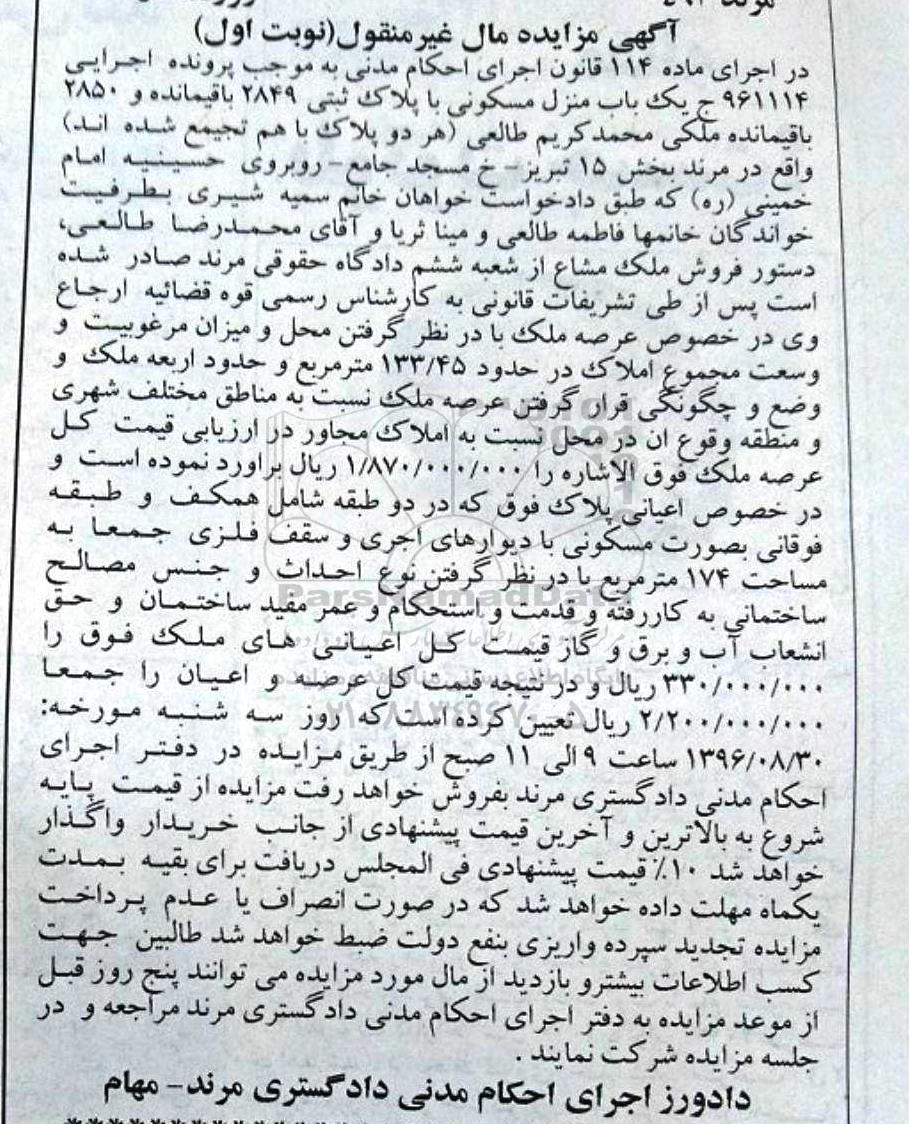 آگهی مزایده مال غیرمنقول(نوبت اول)
در اجرای ماده ۱۱۴ قانون اجرای احکام مدنی به موجب پرونده اجرایی
۹۶۱۱۱۴ ج یک باب منزل مسکونی با پلاک ثبتی ۲۸۴۹ باقیمانده و ۲۸۵۰
باقیمانده ملکی محمدکریم طالعی (هر دو پلاک با هم تجیمع شده اند)
واقع در مرند بخش ۱۵ تبریز- خ مسجد جامع- روبروی حسینیه امام
خمینی (ره) که طبق دادخواست خواهان خانم سمیه شیری بطرفیت
خواندگان خانمها فاطمه طالعی و مینا ثریا و آقای محمدرضا طالعی،
دستور فروش ملک مشاع از شعبه ششم دادگاه حقوقی مرند صادر شده
است پس از طی تشریفات قانونی به کارشناس رسمی قوه قضائیه ارجاع
وی در خصوص عرصه ملک با در نظر گرفتن محل و میزان مرغوبیت و
وسعت مجموع املاک در حدود ۱۳۳/۴۵ مترمربع و حدود اربعه ملک و
وضع و چگونگی قرار گرفتن عرصه ملک نسبت به مناطق مختلف شهری
و منطقه وقوع ان در محل نسبت به املاک مجاور در ارزیابی قیمت کل
عرصه ملک فوق الاشاره را ۱/۸۷۰/۰۰۰/۰۰۰ ریال براورد نموده است و
در خصوص اعیانی پلاک فوق که در دو طبقه شامل همکف و طبقه
فوقانی بصورت مسکونی با دیوارهای اجری و سقف فلزی جمعا به
مساحت ۱۷۴ مترمربع با در نظر گرفتن نوع احداث و جنس مصالح
ساختمانی به کاررفته و قدمت و استحکام و عمر مفید ساختمان و حق
انشعاب آب و برق و گاز قیمت کل اعیانی های ملک فوق را
۳۳۰/۰۰۰/۰۰۰ ریال و در نتیجه قیمت کل عرصه و اعیان را جمعا
۲/۲۰۰/۰۰۰/۰۰۰ ریال تعیین کرده است که روز سه شنبه مورخه:
۱۳۹۶/۰۸/۳۰ ساعت ۹ الی ۱۱ صبح از طریق مزایده در دفتر اجرای
احکام مدنی دادگستری مرند بفروش خواهد رفت مزایده از قیمت پایه
شروع به بالاترین و آخرین قیمت پیشنهادی از جانب خریدار واگذار
خواهد شد ۱۰٪ قیمت پیشنهادی فی المجلس دریافت برای بقیه بمدت
یکماه مهلت داده خواهد شد که در صورت انصراف یا عدم پرداخت
مزایده تجدید سپرده واریزی بنفع دولت ضبط خواهد شد طالبین جهت
کسب اطلاعات بیشترو بازدید از مال مورد مزایده می توانند پنج روز قبل
از موعد مزایده به دفتر اجرای احکام مدنی دادگستری مرند مراجعه و در
جلسه مزایده شرکت نمایند .
دادورز اجرای احکام مدنی دادگستری مرند- مهام
ParsNamadData